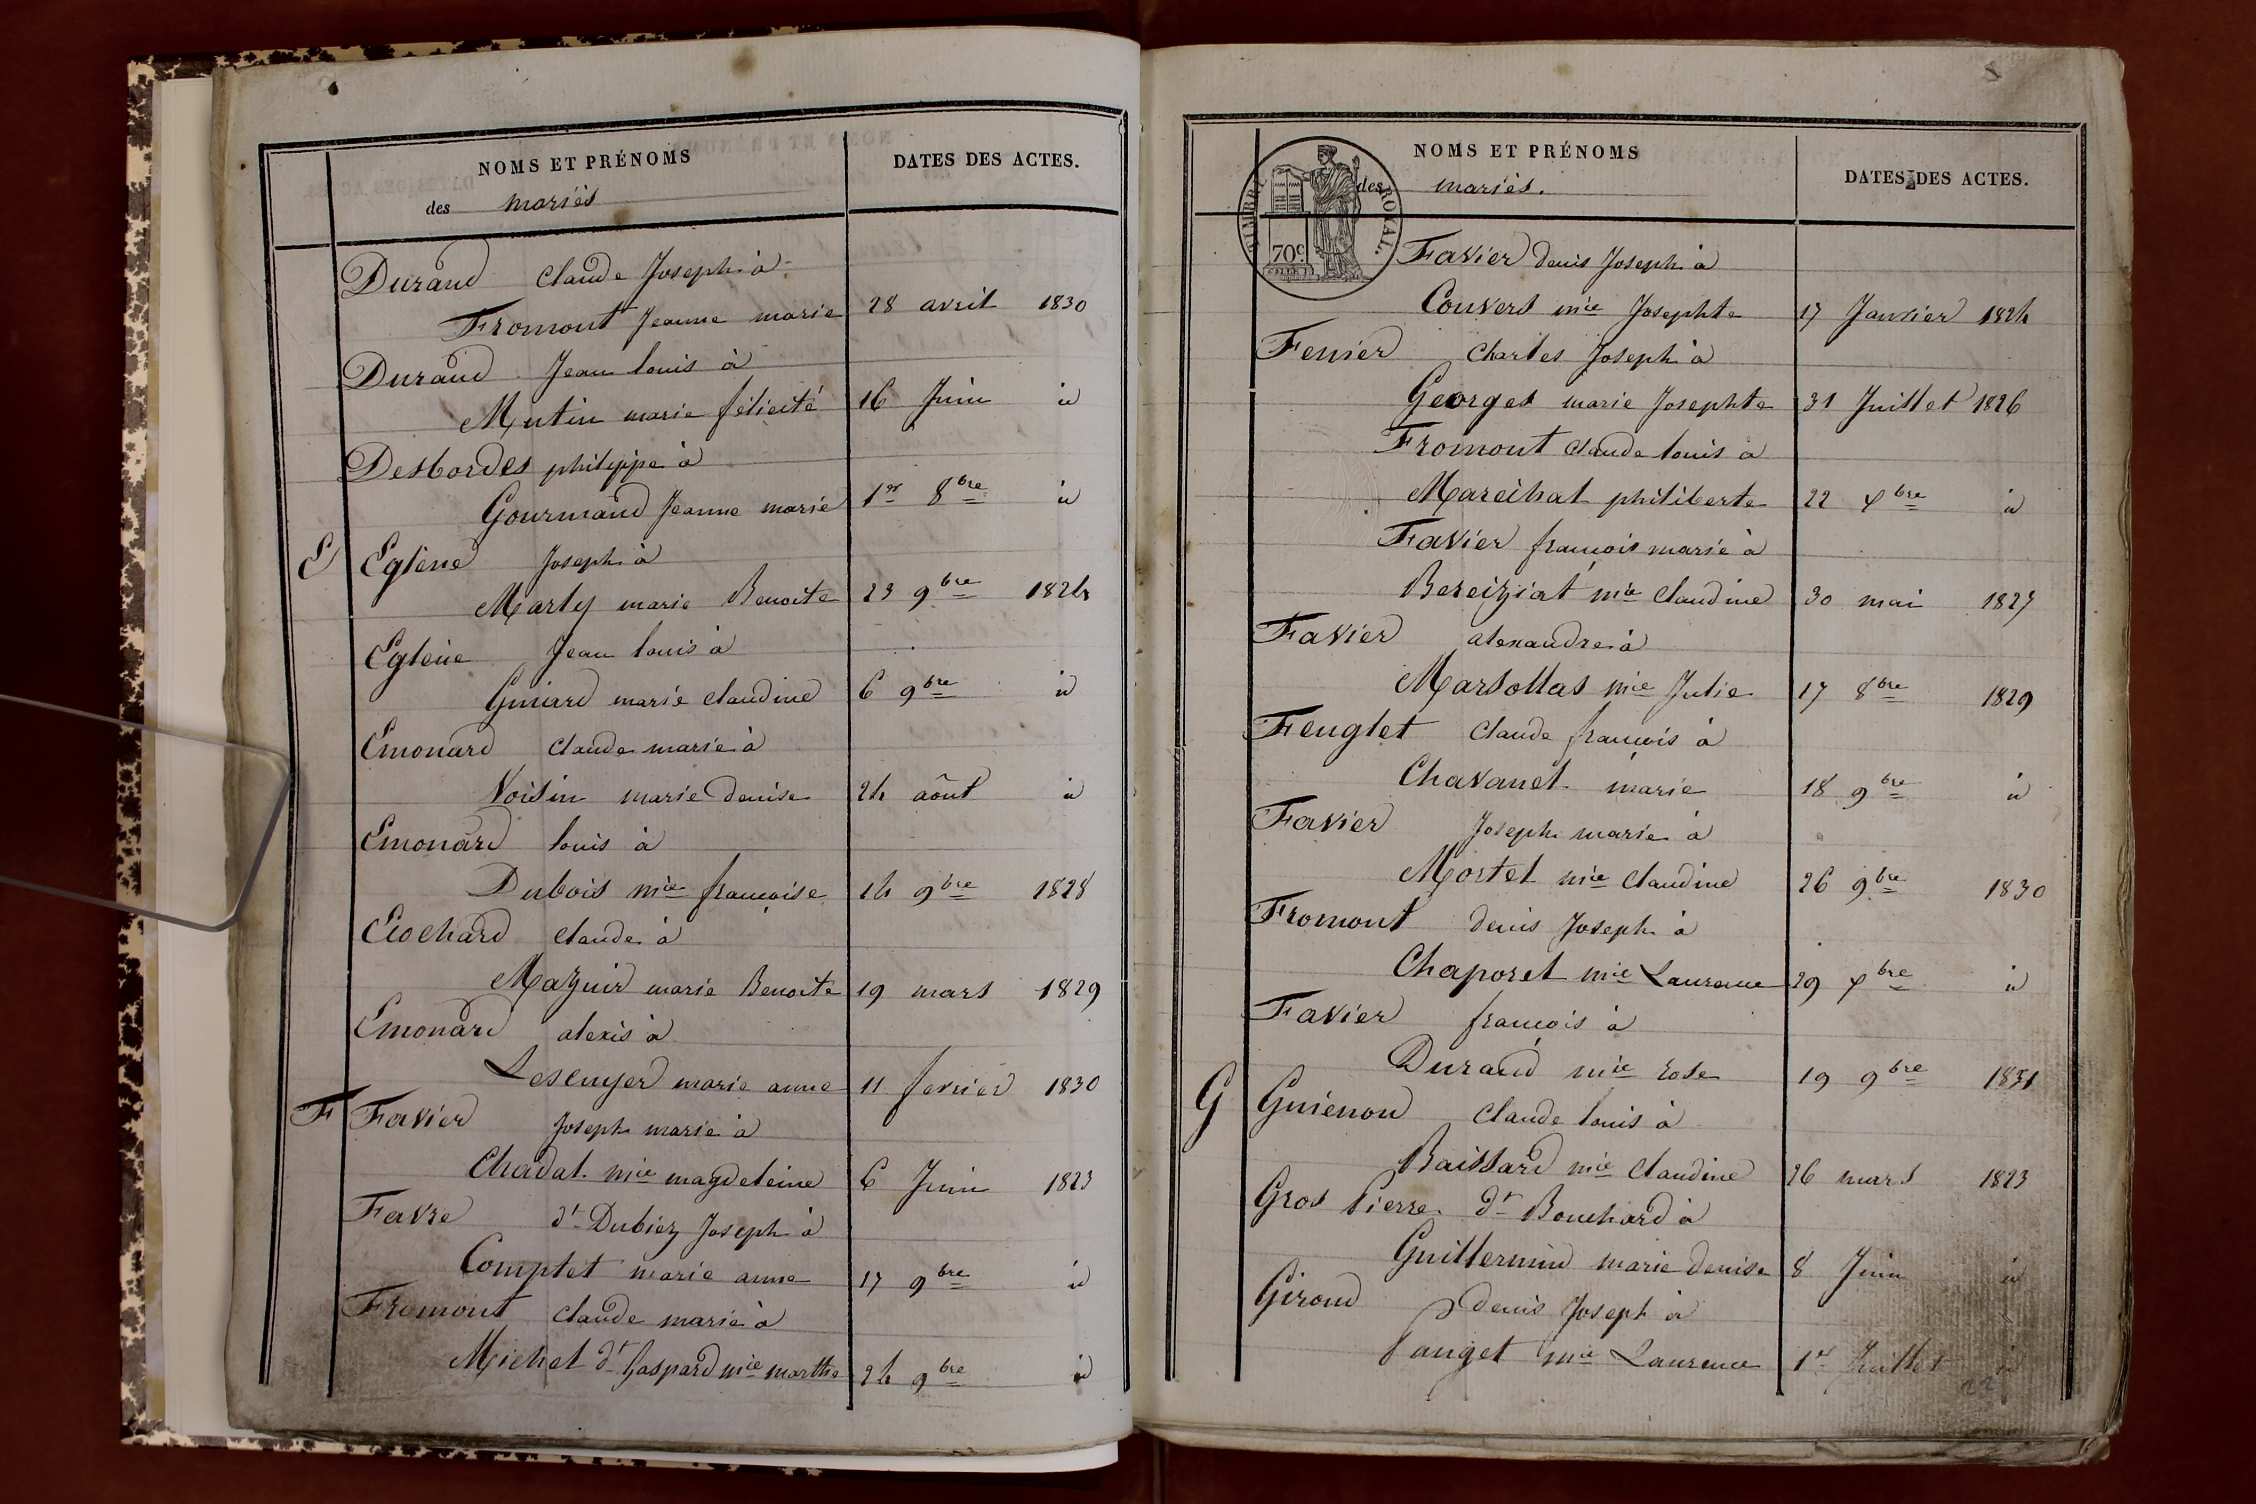 NOMS ET PRÉNOMS
DATES DES ACTES.
des mariés
Durand Claude Joseph à
Fromont Jeanne marie 28 avril 1830
Durand Jean louis à
Mutin marie félicité 16 Juin id
Desbordes philippe à
Gourmand Jeanne marie 1er 8bre id
E Eglène Joseph à
Marly marie Benoite 23 9bre 1824
Eglène Jean louis à
Guiard marie claudine 6 9bre id
Emonard claude marie à
Voisin marie denise 24 août id
Emonard louis à
Dubois mie françoise 14 9bre 1828
Ecochard claude à
Mazuir marie Benoite 19 mars 1829
Emonard alexis à
Lescuyer marie anne 11 fevrier 1830
F Favier Joseph marie à
Chadal mie magdeleine 6 Juin 1823
Favre dt Dubiez Joseph à
Comptet marie anne 17 9bre id
Fromont claude marie à
Michel dt Gaspard mie marthe 24 9bre id
8
NOMS ET PRÉNOMS
DATES DES ACTES.
des mariés.
TIMBRE ROYAL.
70c
Favier denis Joseph à
Convers mie Josephte 17 Janvier 1824
Ferrier Charles Joseph à
Georges marie Josephte 31 Juillet 1826
Fromont claude louis à
Maréchal philiberte 22 Xbre id
Favier françois marie à
Bereiziat mie claudine 30 mai 1827
Favier alexandre à
Marsollas mie Julie 17 8bre 1829
Feuglet Claude françois à
Chavanel marie 18 9bre id
Favier Joseph marie à
Mortel mie Claudine 26 9bre 1830
Fromont denis Joseph à
Chaporel mie Laurence 29 Xbre id
Favier françois à
Durand mie rose 19 9bre 1831
G Guienon claude louis à
Baissard mie claudine 26 mars 1823
Gros Pierre dt Bouchard à
Guillermin marie denise 8 Juin id
Giroud denis Joseph à
Panget mie Laurence 1er Juillet id
22